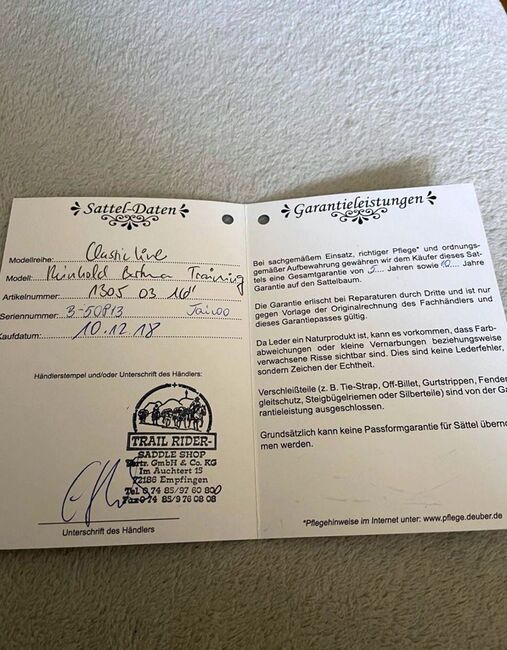 Sattel-Daten
Modellreihe: Classic line
Modell: Reinhold Training
Artikelnummer: 1305 03 16"
Seriennummer: 3-50P13
Kaufdatum: 10.12.18
Händlerstempel und/oder Unterschrift des Händlers:
TRAIL RIDER-
SADDLE SHOP
Vertr. GmbH & Co. KG
Im Auchtert 15
72186 Empfingen
Tel. 0 74 85/97 60 800
Fax 0 74 85/9 76 08 08
Unterschrift des Händlers
Garantieleistungen
Bei sachgemäßem Einsatz, richtiger Pflege* und ordnungs-
gemäßer Aufbewahrung gewähren wir dem Käufer dieses Sat-
tels eine Gesamtgarantie von 5 Jahren sowie 10 Jahre
Garantie auf den Sattelbaum.
Die Garantie erlischt bei Reparaturen durch Dritte und ist nur
gegen Vorlage der Originalrechnung des Fachhändlers und
dieses Garantiepasses gültig.
Da Leder ein Naturprodukt ist, kann es vorkommen, dass Farb-
abweichungen oder kleine Vernarbungen beziehungsweise
verwachsene Risse sichtbar sind. Dies sind keine Lederfehler,
sondern Zeichen der Echtheit.
Verschleißteile (z. B. Tie-Strap, Off-Billet, Gurtstrippen, Fender
gleitschutz, Steigbügelriemen oder Silberteile) sind von der Ga
rantieleistung ausgeschlossen.
Grundsätzlich kann keine Passformgarantie für Sättel übernо
men werden.
*Pflegehinweise im Internet unter: www.pflege.deuber.de